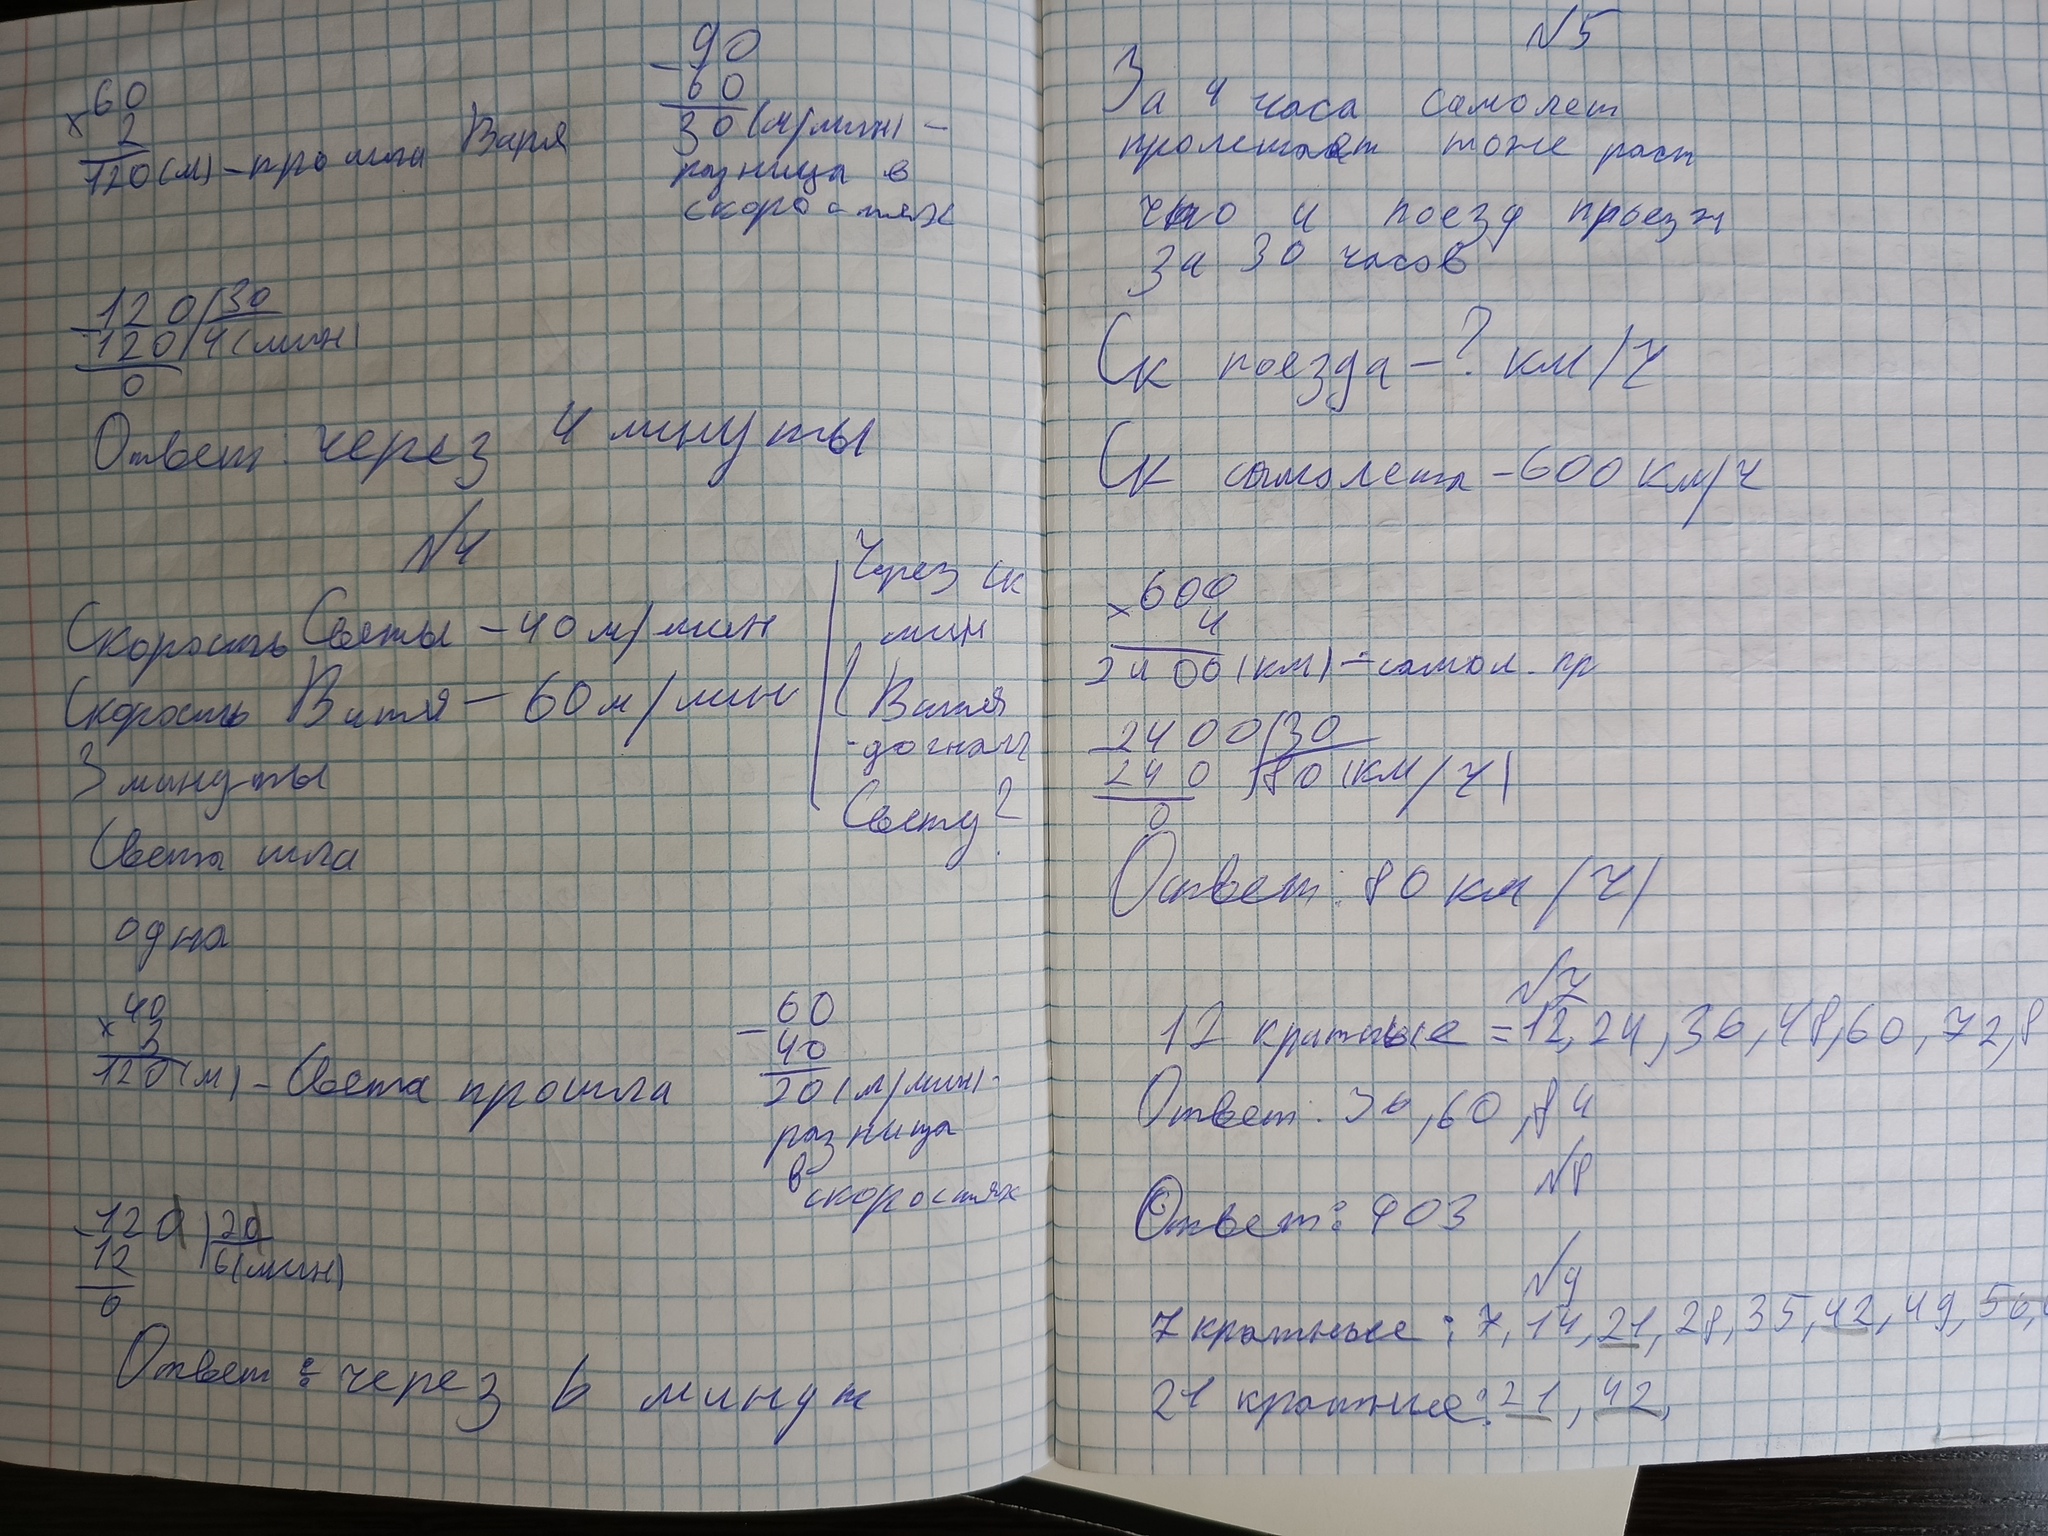 60
× 2
120(м) - прошла Варя
90
- 60
30(м/мин) -
разница в
скоростях
120 | 30
- 120 | 4(мин)
0
Ответ: через 4 минуты
№4
Скорость Светы - 40 м/мин
Скорость Витя - 60 м/мин
3 минуты
Света шла
одна
Через ск
мин
Витя
догнал
Свету?
40
× 3
120(м) - Света прошла
60
- 40
20(м/мин) -
разница
в скоростях
120 | 20
- 12 | 6(мин)
0
Ответ: через 6 минут
№5
За 4 часа самолет
пролетает тоже раст
что и поезд прьезж
за 30 часов
Ск поезда - ? км/ч
Ск самолета - 600 км/ч
600
× 4
2400(км) - самол. пр
2400 | 30
- 240 | 80(км/ч)
0
Ответ: 80 км/ч)
№7
12 кратные = 12, 24, 36, 48, 60, 72, 8
Ответ: 36, 60, 84
№8
Ответ: 903
№9
7 кратные: 7, 14, 21, 28, 35, 42, 49, 56,
21 кратные: 21, 42,